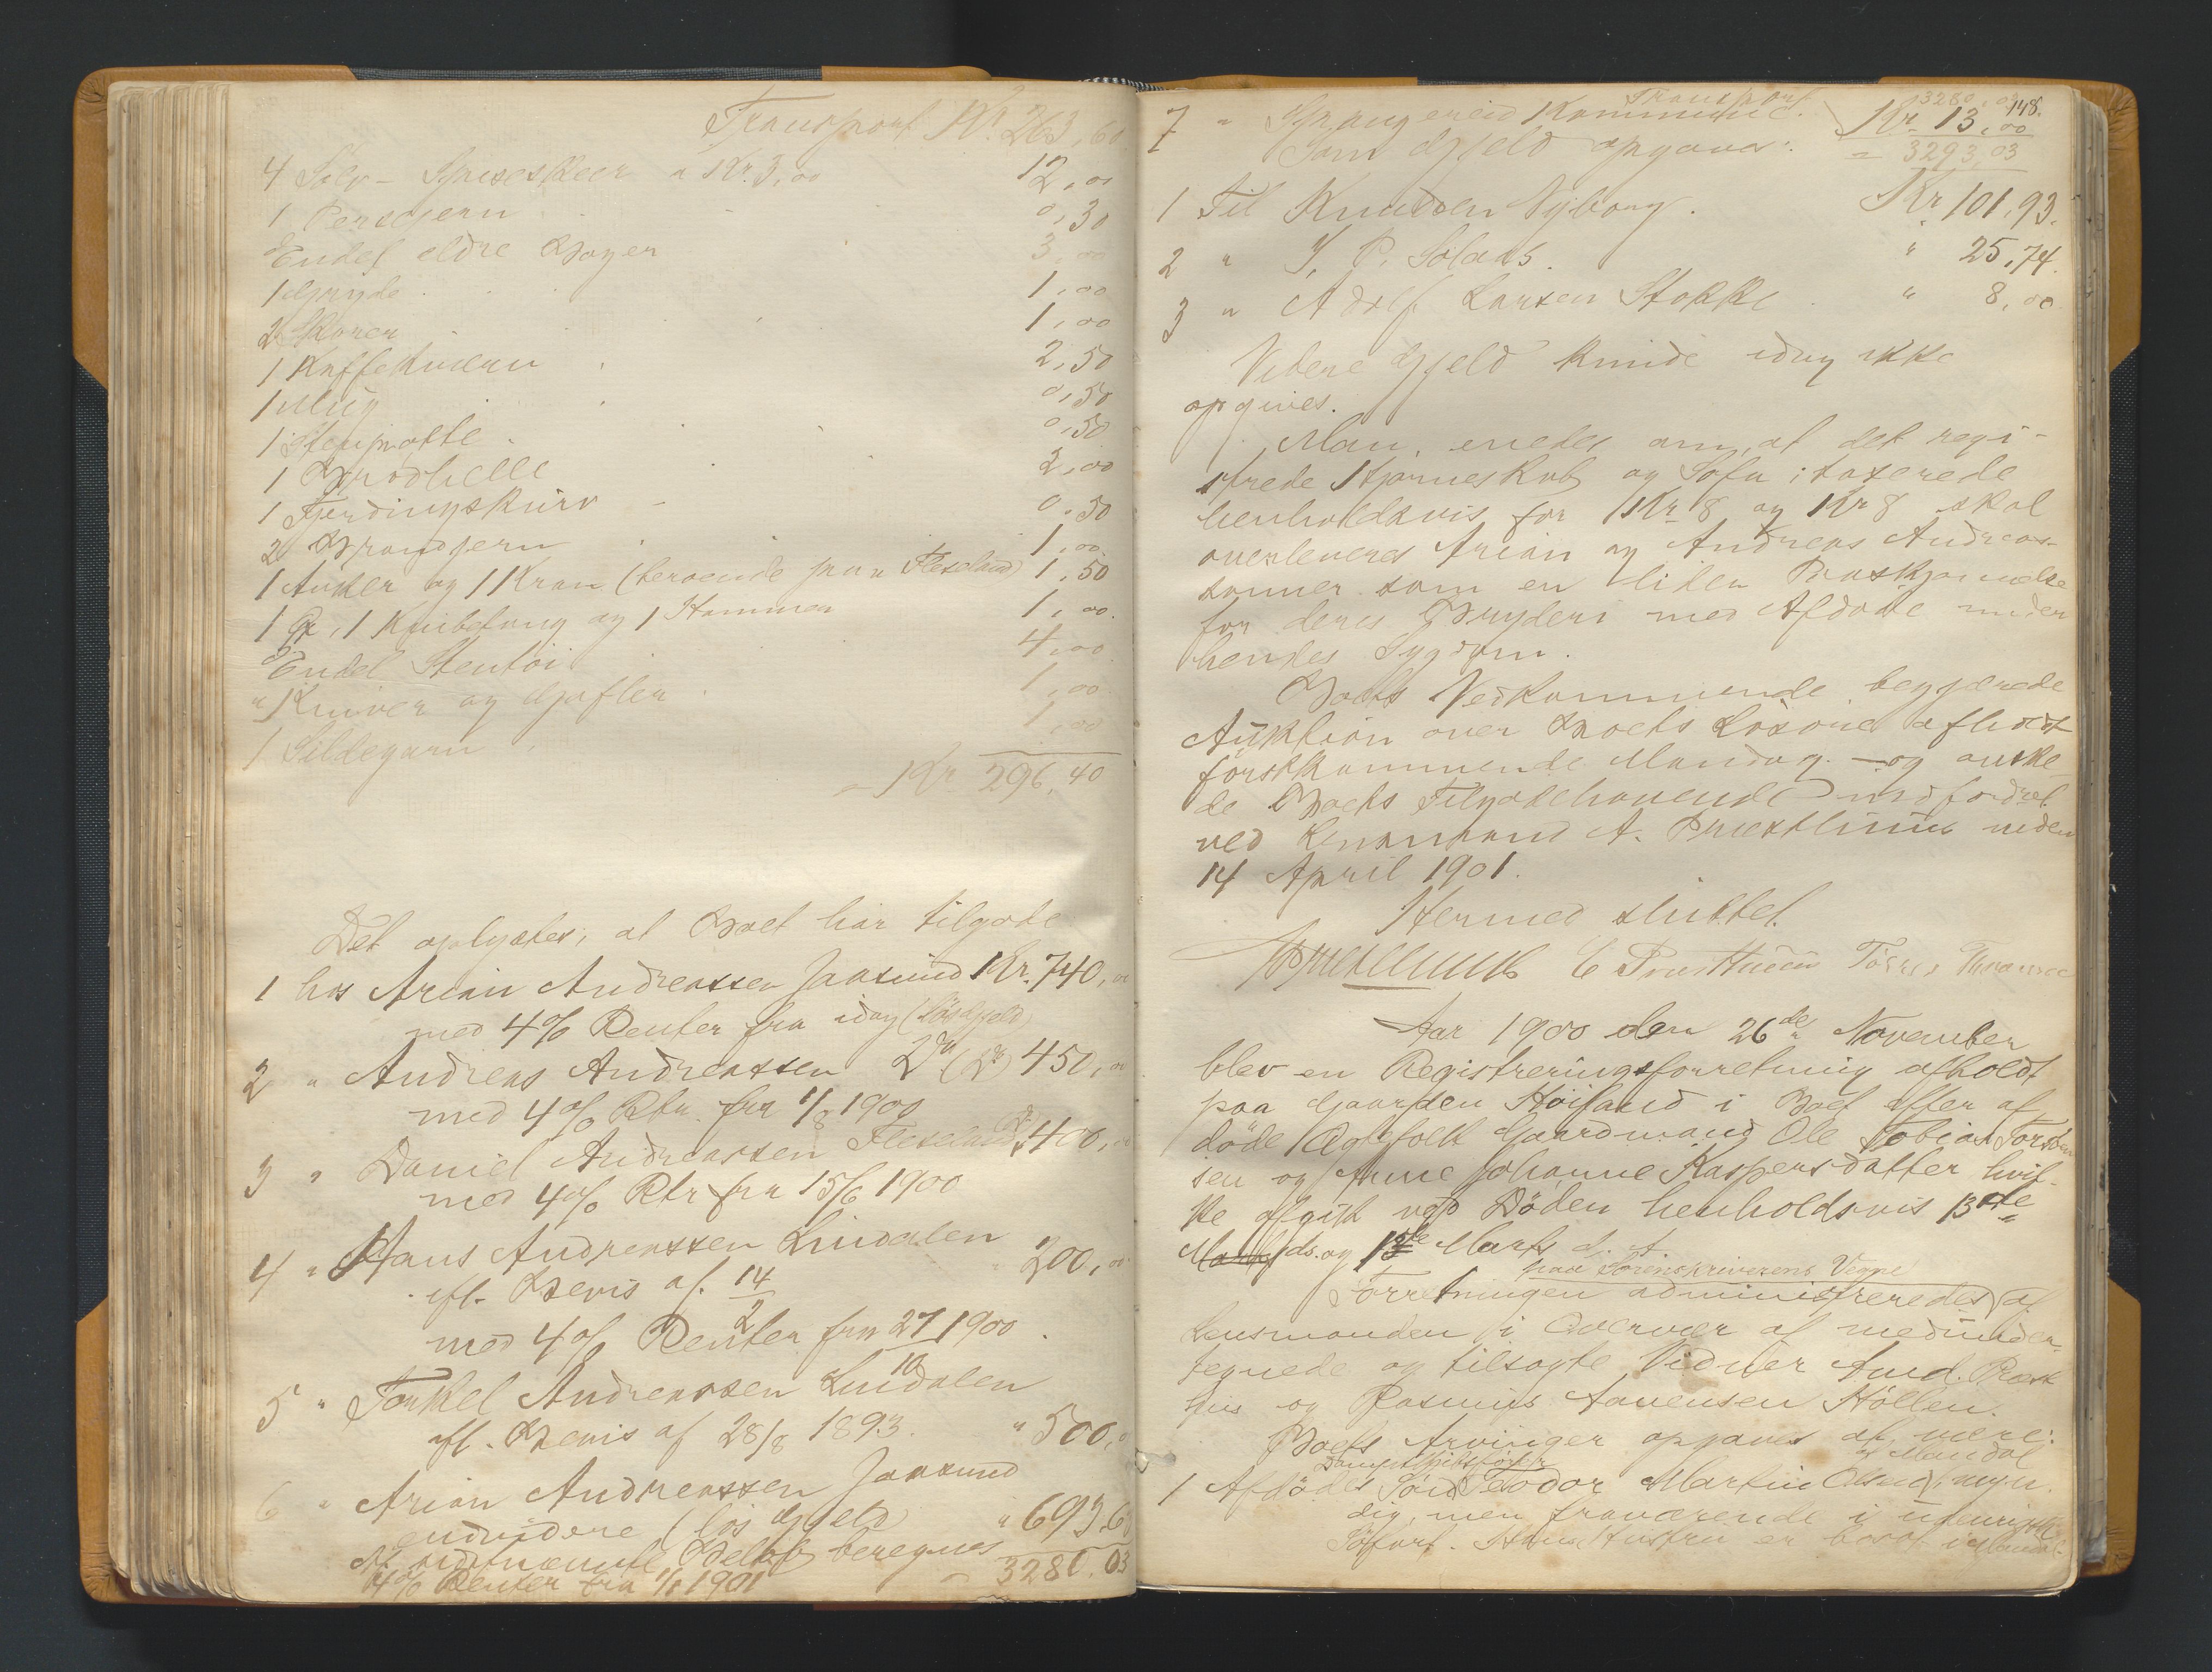 Transport Kr. 263,60
4 Sølv-Spiseskeer a Kr. 3,00 12,00
1 Persejern 0,30
Endel eldre Bøger 3,00
1 Gryde 1,00
2 1,00
1 Kaffekværn 2,50
1 Mug 0,50
1 Stenpotte 0,50
1 Brødhelle 2,00
1 Fjerdingskurv 0,50
2 Brandjern 1,00
1 Anker og 1 Kran (beroende paa Fleseland) 1,50
1 Øx, 1 Knibetang og 1 Hammer 1,00
Endel Stentøi 4,00
" Kniver og Gafler 1,00
1 Sildegarn 1,00
= Kr 296,40
Det oplystes, at Boet har tilgode
1 hos Arian Andreassen Jaasund Kr. 740,00
med 4% Renter fra idag (løsgjeld)
2 " Andreas Andreassen 450,00
med 4% Rtr. fra 1/8 1900
3 " Daniel Andreassen Fleseland 400,00
med 4% Rtr fra 15/6 1900
4 " Hans Andreassen Lindalen
efl. Bevis af 14/2 " 200,00
med 4% Renter fra 27/10 1900.
5 " Torkel Andreassen Lindalen
efl. Bevis af 28/8 1893. " 500,0
6 " Arian Andreassen Jaasund
endvidere (løs Gjeld) " 693,6
Af sidstnævnte Beløb beregnes
4% Renter fra 1/1 1901 = 3280.03
148.
Transport 3280,03
7 " Spangereid Kommune. Kr 13,00
Som Gjeld opgaves: = 3293,03
1 Til Knudsen Nyborg. Kr 101,93.
2 " P. Solaas. " 25,74.
3 " Adolf Larsen Stokke " 8,00
Videre Gjeld kunde idag ikke
opgives.
Man enedes om, at det regi-
strede Hjørneskab og Sofa; taxerede
henholdsvis for Kr 8 og Kr 8 skal
overleveres Arian og Andreas Andreas-
sønner som en liden Paaskjønnelse
for deres Bryderi med Afdøde under
hendes Sygdom.
Boets Vedkommende begjærede
Auktion over Boets Løsøre afholdt
førstkommende Mandag - og ønske-
de Boets Tilgodehavende indfordret
ved Lensmand A. Præsthuus inden
14 April 1901.
Hermed sluttet.
APræsthuus E Præsthuus Tørres
Aar 1900 den 26de November
blev en Registreringsforretning afholdt
paa Gaarden Høiland i Boet efter af-
døde Ægtefolk Gaardmand Ole Tobias Torkild-
sen og Anne Johanne Kaspersdatter hvil-
ke afgik ved Døden henholdsvis 13de
ds. og 1ste Marts d. A.
paa Sorenskriverens Vegne
Forretningen administreredes af
Lensmanden i Overvær af medunder-
tegnede og tilsagte Vidner Amd. Præst-
hus og Rasmus Aanensen Höllen.
Boets Arvinger opgaves at være:
Dampskibsfører af Mandal
1 Afdødes Søn Teodor Martin Olsen, myn-
dig, men fraværende i udenrigsk
Søfart. Hans Hustru er bosat i Mandal